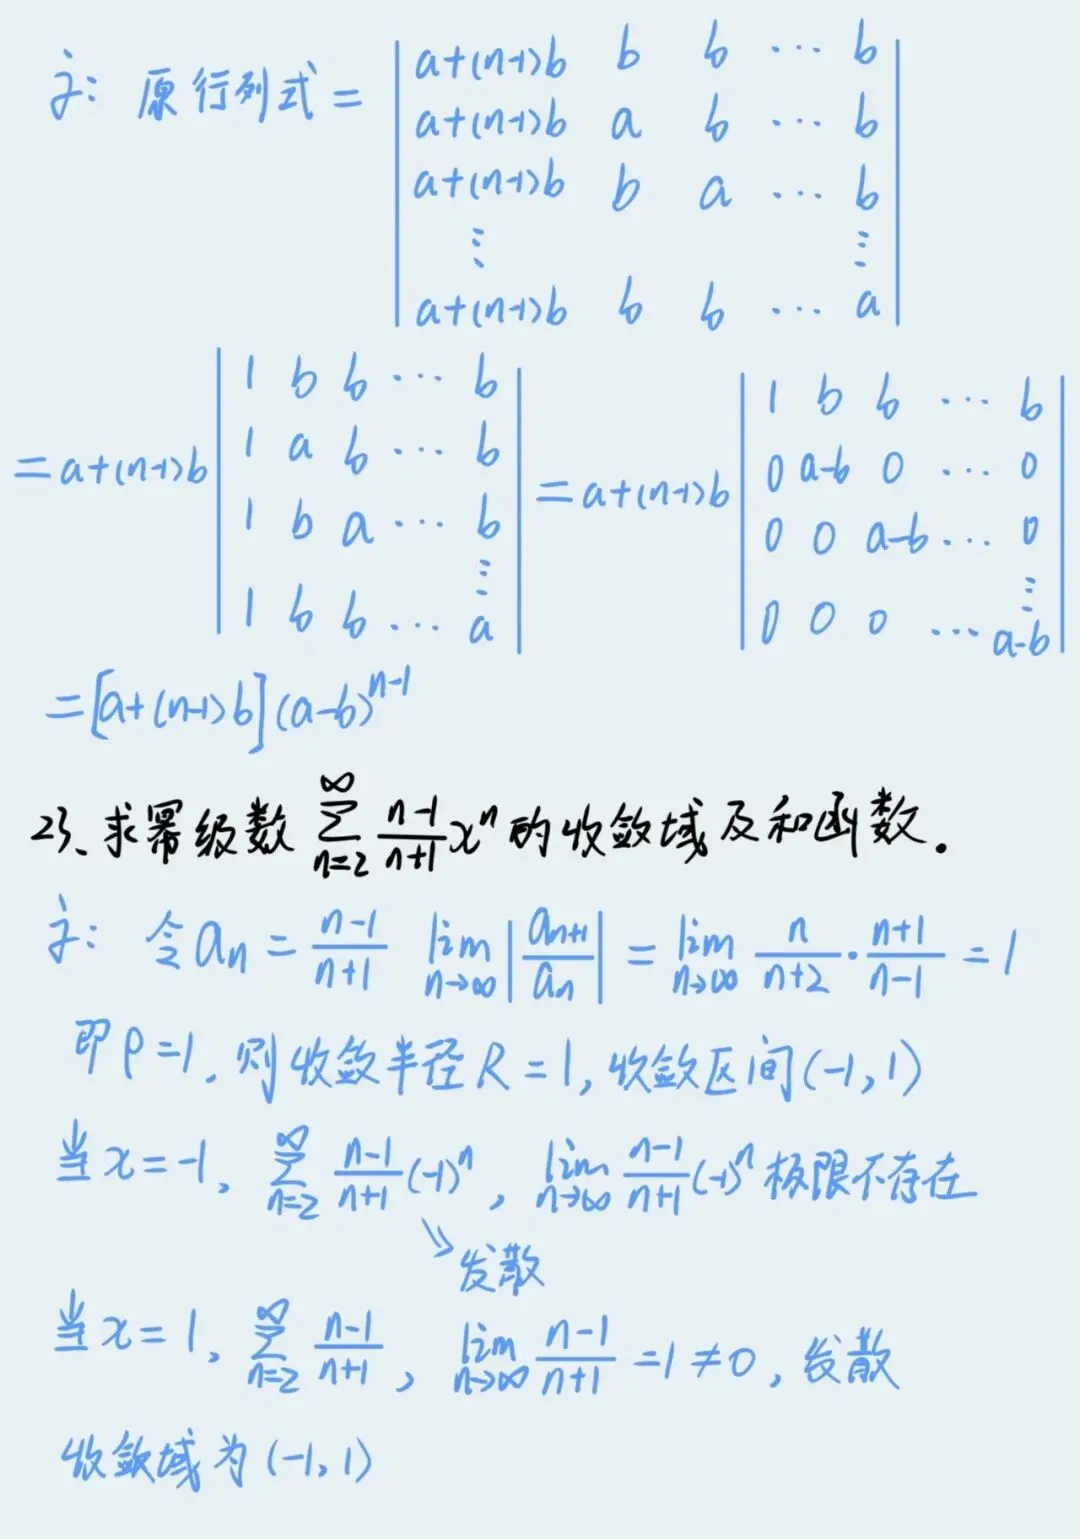 解: 原行列式 =
| a+(n-1)b b b ... b |
| a+(n-1)b a b ... b |
| a+(n-1)b b a ... b |
⋮ ⋮
| a+(n-1)b b b ... a |
= a+(n-1)b | 1 b b ... b | = a+(n-1)b | 1 b b ... b |
| 1 a b ... b | | 0 a-b 0 ... 0 |
| 1 b a ... b | | 0 0 a-b ... 0 |
⋮ ⋮
| 1 b b ... a | | 0 0 0 ... a-b |
= [a+(n-1)b](a-b)^{n-1}
23、求幂级数 \sum_{n=2}^{∞} \frac{n-1}{n+1} x^n 的收敛域及和函数.
解: 令 a_n = \frac{n-1}{n+1} \lim_{n→∞} |\frac{a_{n+1}}{a_n}| = \lim_{n→∞} \frac{n}{n+2} · \frac{n+1}{n-1} = 1
即 ρ=1, 则收敛半径 R=1, 收敛区间(-1,1)
当 x=-1, \sum_{n=2}^{∞} \frac{n-1}{n+1} (-1)^n, \lim_{n→∞} \frac{n-1}{n+1} (-1)^n 极限不存在
↘ 发散
当 x=1, \sum_{n=2}^{∞} \frac{n-1}{n+1}, \lim_{n→∞} \frac{n-1}{n+1} = 1 ≠ 0, 发散
收敛域为 (-1,1)